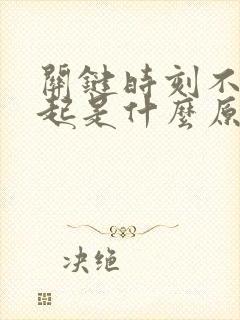 關鍵時刻不
起是什麼原
决绝